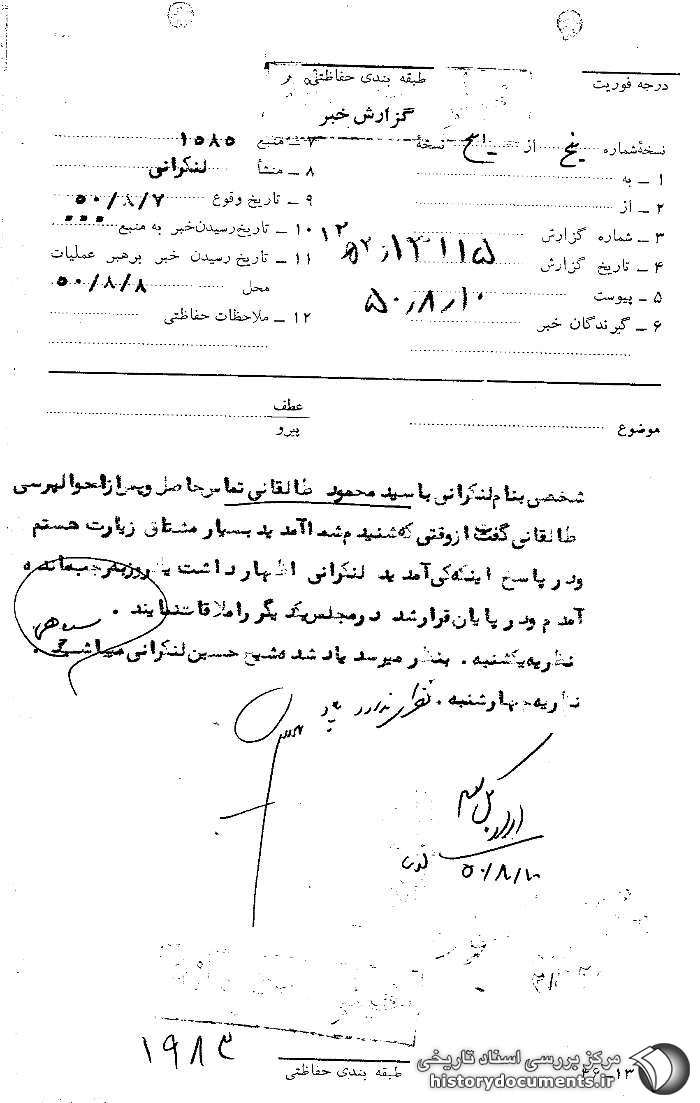 درجه فوریت
طبقه بندی حفاظتی
گزارش خبر
نسخهٔ شماره پنج از پنج نسخهٔ
۱ ـ به
۲ ـ از
۳ ـ شماره گزارش
۴ ـ تاریخ گزارش
۵ ـ پیوست ۵۰٫۸٫۱۰
۶ ـ گیرندگان خبر
۷ ـ منبع ۱۵۸۵
۸ ـ منشأ لنکرانی
۹ ـ تاریخ وقوع ۵۰/۸/۷
۱۰ ـ تاریخ رسیدن خبر به منبع
۱۱ ـ تاریخ رسیدن خبر برهبر عملیات
محل ۵۰/۸/۸
۱۲ ـ ملاحظات حفاظتی
موضوع
عطف
پیرو
شخصی بنام لنکرانی با سید محمود طالقانی تماس حاصل و پس از احوالپرسی
طالقانی گفت از وقتی که شنیدم شما آمدید بسیار مشتاق زیارت هستم
و در پاسخ اینکه کی آمدید لنکرانی اظهار داشت یک روز به رجب مانده
آمدم و در پایان قرار شد در مجلس یکدیگر را ملاقات نمایند .
نظریه یکشنبه . بنظر میرسد یاد شده شیخ حسین لنکرانی میباشد .
نظریه چهارشنبه . نظری ندارد
۵۰/۸/۱۰
۱۹۸۳
طبقه بندی حفاظتی
مرکز بررسی اسناد تاریخی
historydocuments.ir